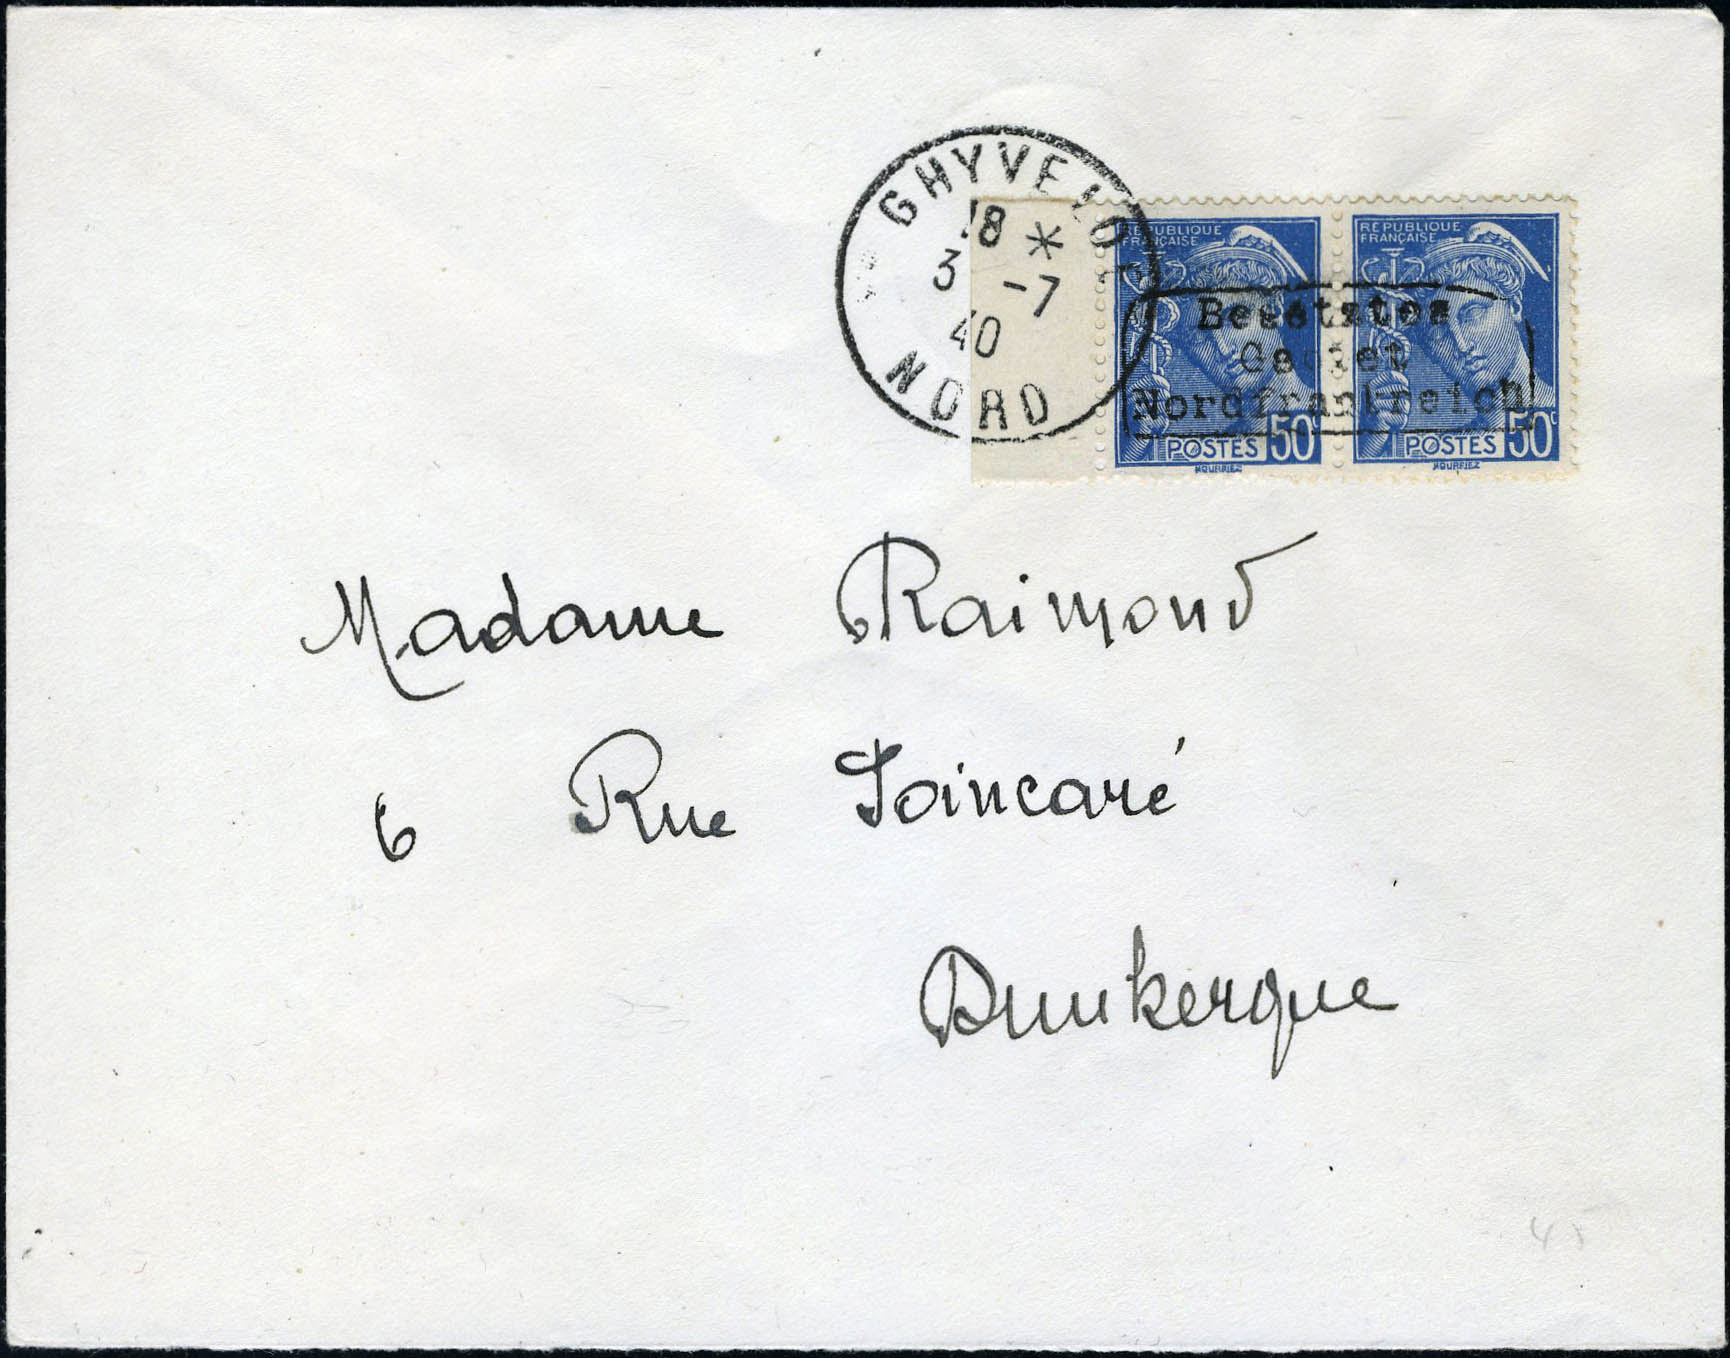 GHYVELDE
18 *
3 -7
40
NORD
RÉPUBLIQUE
FRANÇAISE
POSTES 50c
MOURRIEZ
RÉPUBLIQUE
FRANÇAISE
POSTES 50c
MOURRIEZ
Besetztes
Gebiet
Nordfrankreich
Madame Raimond
6 Rue Poincaré
Dunkerque